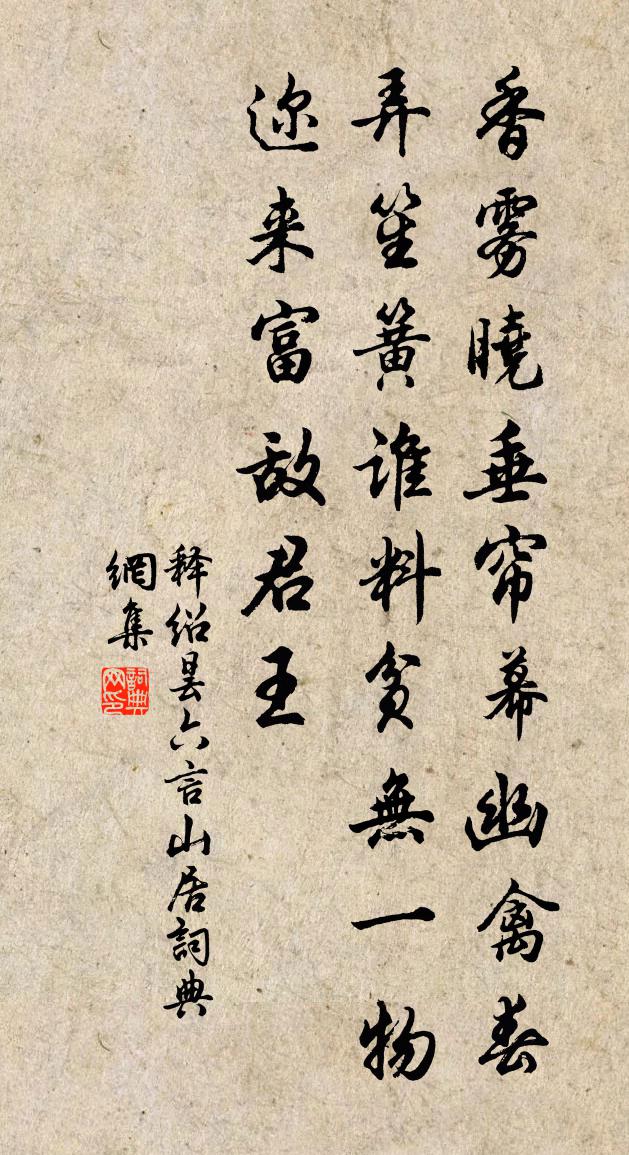 香雾曉垂帘幕幽禽春
弄笙簧谁料貧無一物
迩来富敌君王
释绍昙六言山居詞典
網集
詞典
网印